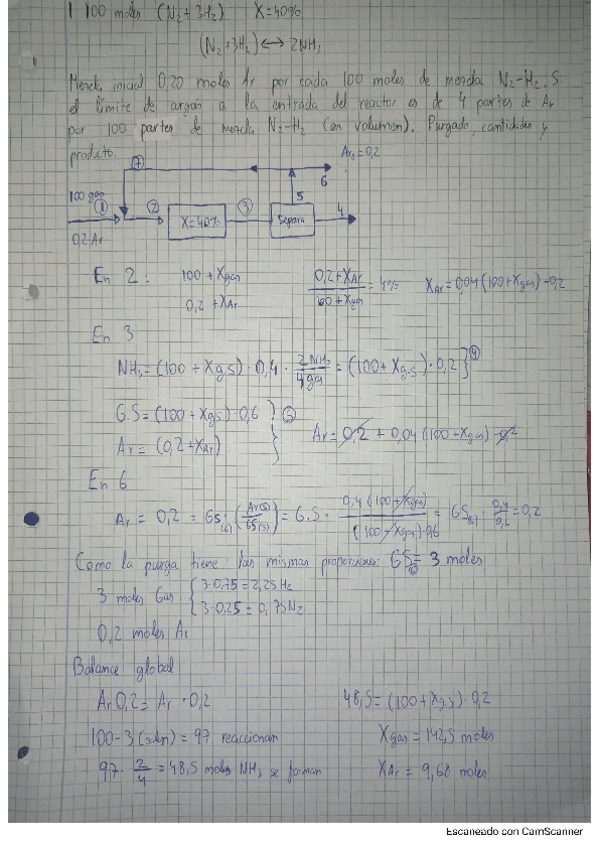 1 100 moles (N₂+3H₂) X=40%
(N₂+3H₂) <-> 2NH₃
Mezcla inicial 0,20 moles Ar por cada 100 moles de mezcla N₂-H₂. Si
el límite de argón a la entrada del reactor es de 4 partes de Ar
por 100 partes de mezcla N₂-H₂ (en volumen). Purgado, cantidades y
producto.
7
Ar₆=0,2
6
100 gas
1
2
3
5
4
X=40%
Separa
0,2 Ar
En 2: 100 + Xgas
0,2 + XAr
(0,2+XAr)/(100+Xgas) = 4% XAr=0,04(100+Xgas)-0,2
En 3
NH₃=(100 + Xg.s)·0,4·(2NH₃/4gas)=(100+Xg.s)·0,2} 4
G.S=(100+Xgs)·0,6 } 5
Ar=(0,2+XAr) Ar=0,2+0,04(100+Xgas)-0,2
En 6
Ar = 0,2 = Gs(6)·(Ar(5)/GS(5)) = G.S· =GS· =0,2
Como la purga tiene las mismas proporciones: GS= 3 moles
3 moles Gas { 3·0,75=2,25H₂
3·0,25=0,75N₂
0,2 moles Ar
Balance global
Ar 0,2= Ar ·0,2 48,5=(100+Xg.s)·0,2
100-3 = 97 reaccionan Xgas=142,5 moles
97·2/4=48,5 moles NH₃ se forman XAr= 9,68 moles
Escaneado con CamScanner